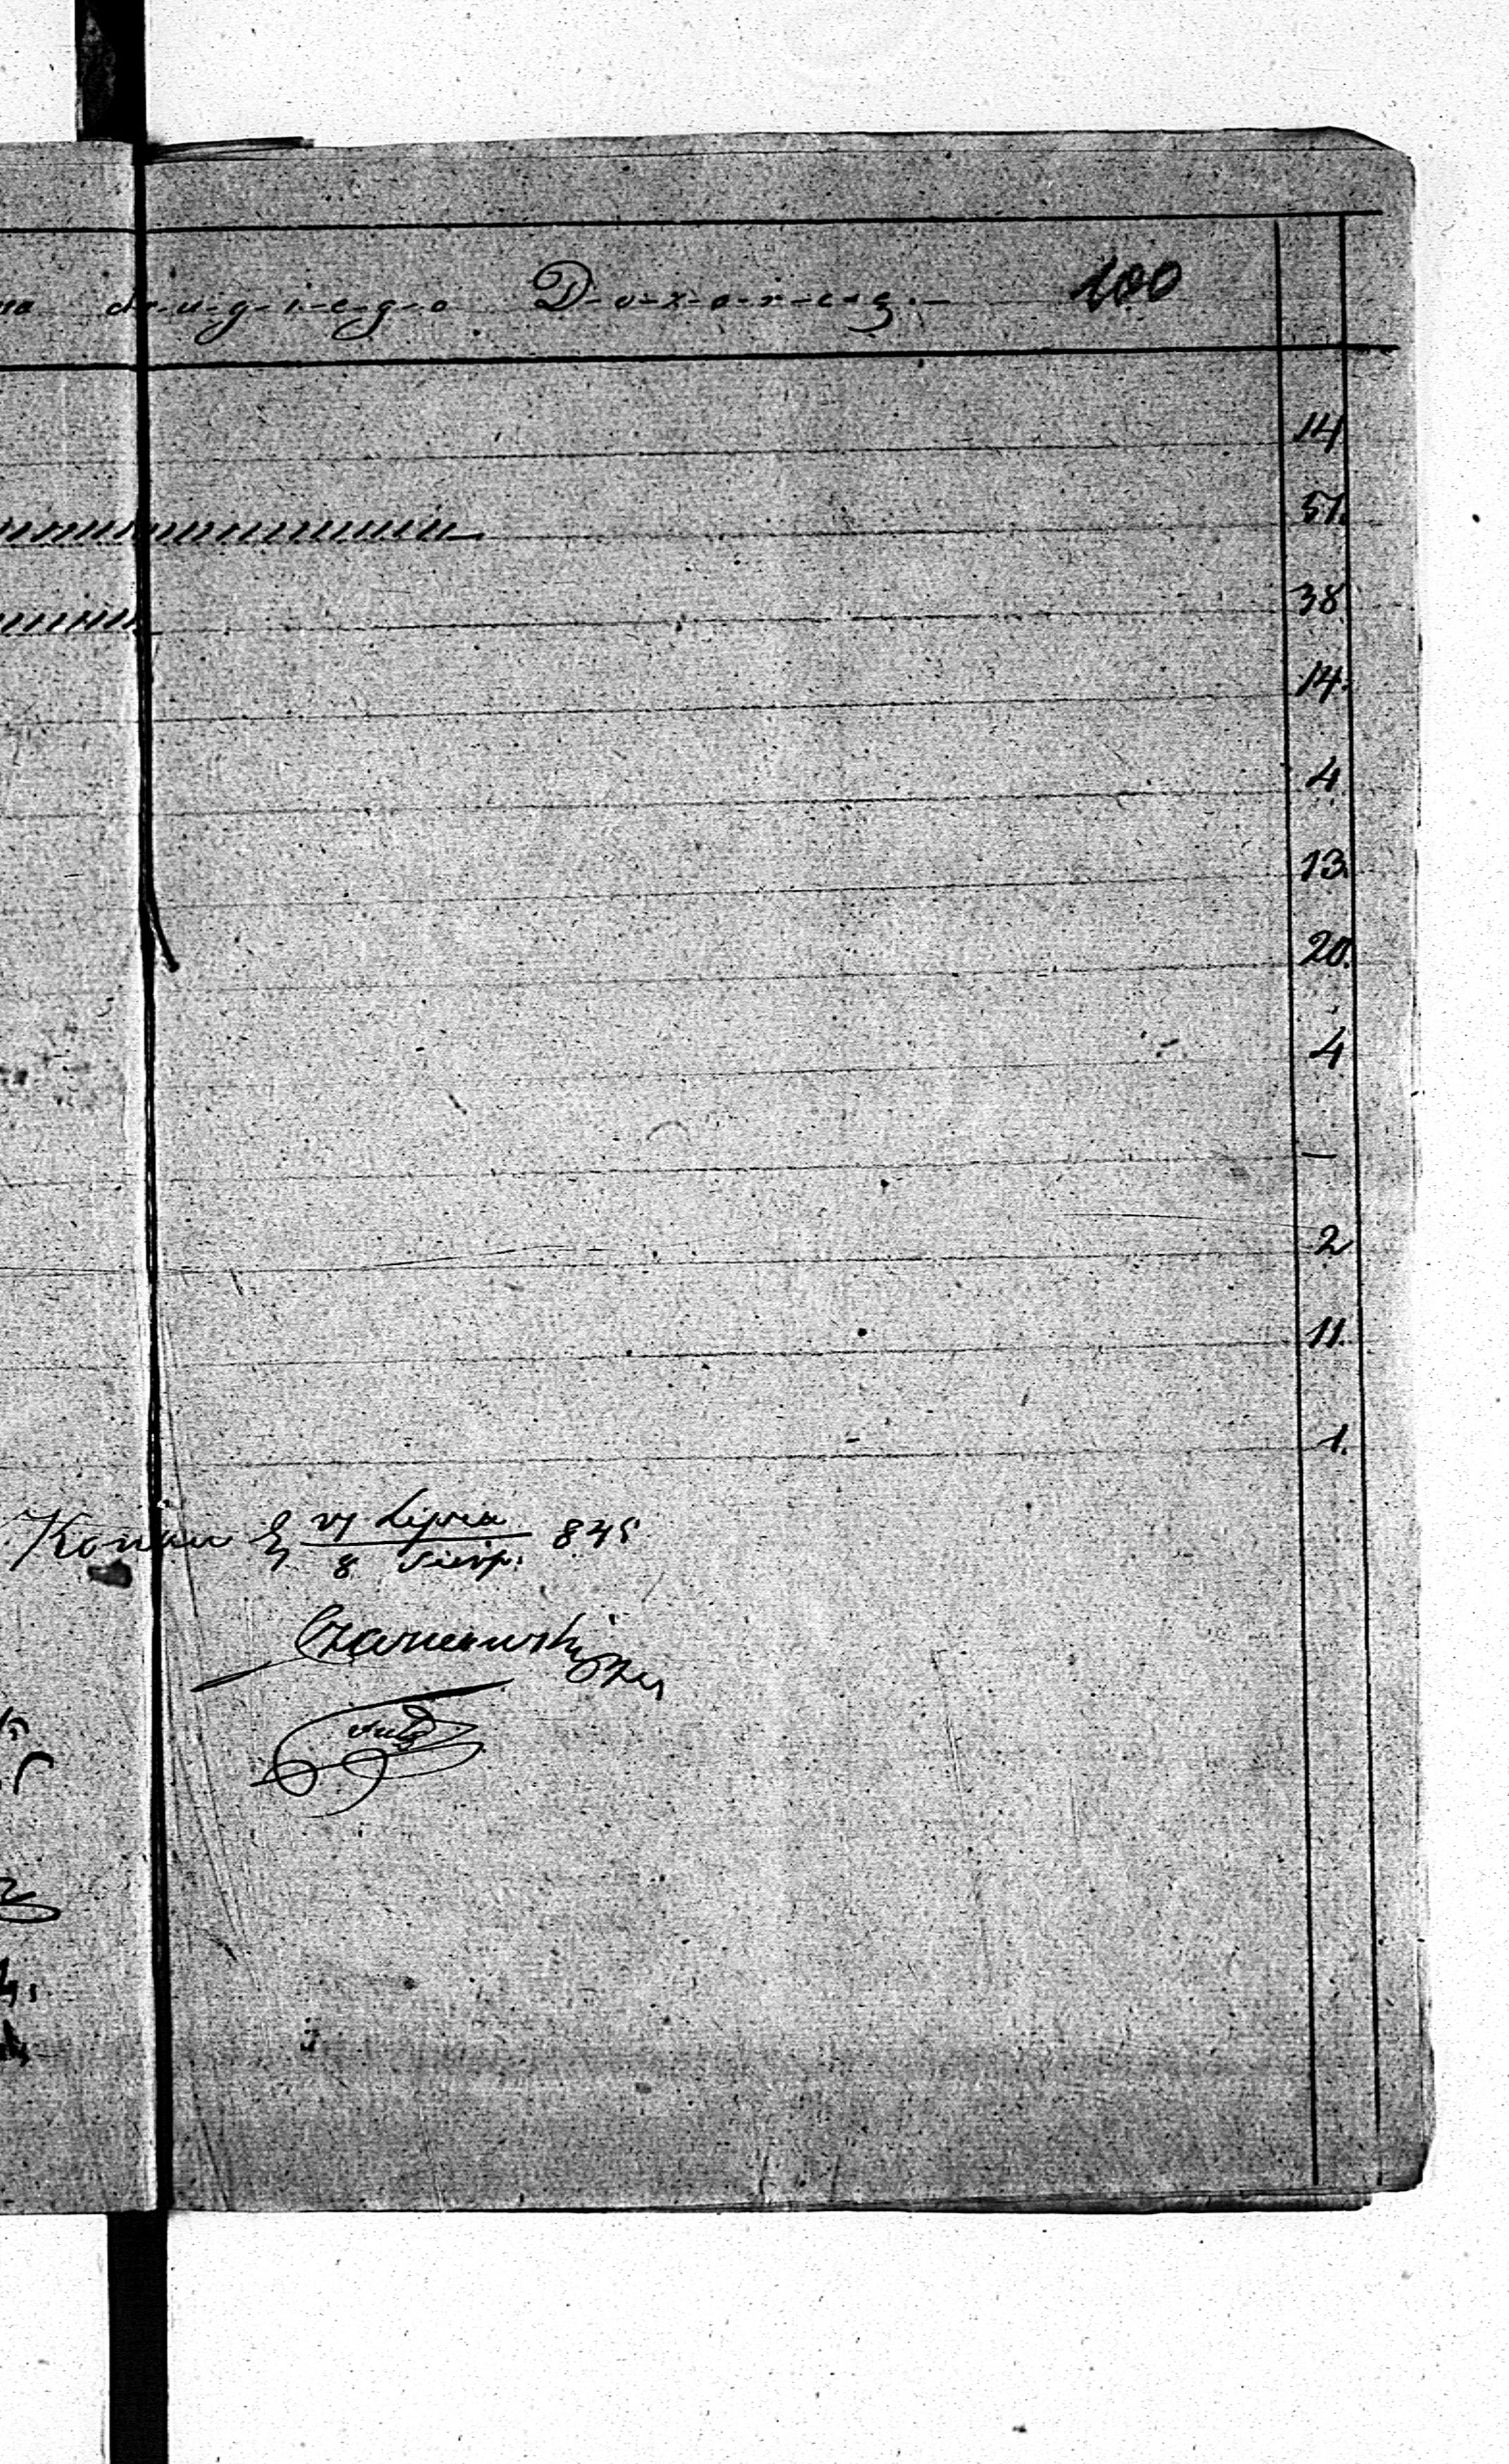 na drugiego Dozorcę.— 100
14
51.
38
14.
4
13.
20.
4
—
2
11.
1.
Konin 27 Lipca / 8 Sierp. 845
Czarnowski